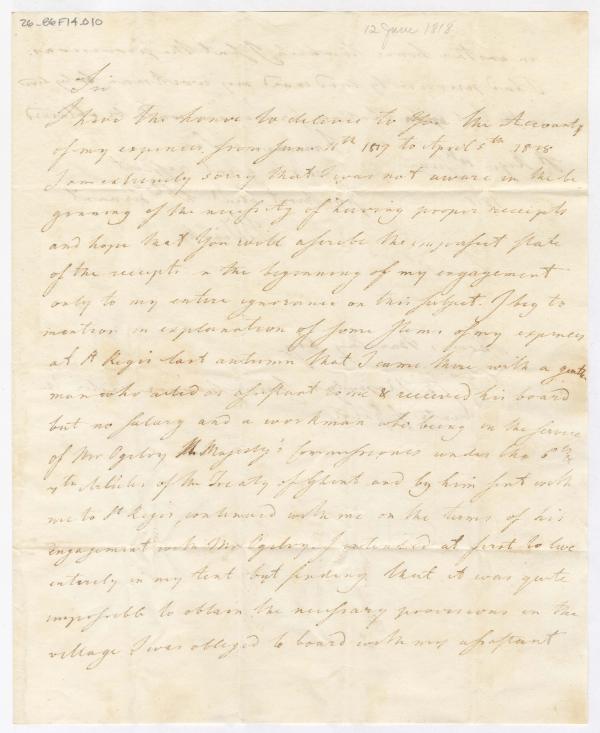 26-86F14.010
12 June 1818
Sir
I have the honor to deliver to You the Accounts
of my expences from June 4th 1817 to April 5th 1818
I am extremely sorry that I was not aware in the be
ginning of the necessity of having proper receipts
and hope that You will ascribe the imperfect state
of the receipts in the beginning of my engagement
only to my entire ignorance on this subject. I beg to
mention in explanation of some Items of my expences
at St Regis last autumn that I came there with a gentle
man who acted as assistant to me & received his board
but no salary and a workman who being in the service
of Mr Ogilvy His Majesty's Commissioner under the 6th &
7th Articles of the Treaty of Ghent and by him sent with
me to St Regis, continued with me on the terms of his
engagement with Mr Ogilvy. I intended at first to live
entirely in my tent but finding that it was quite
impossible to obtain the necessary provisions in the
village I was obliged to board with my assistant